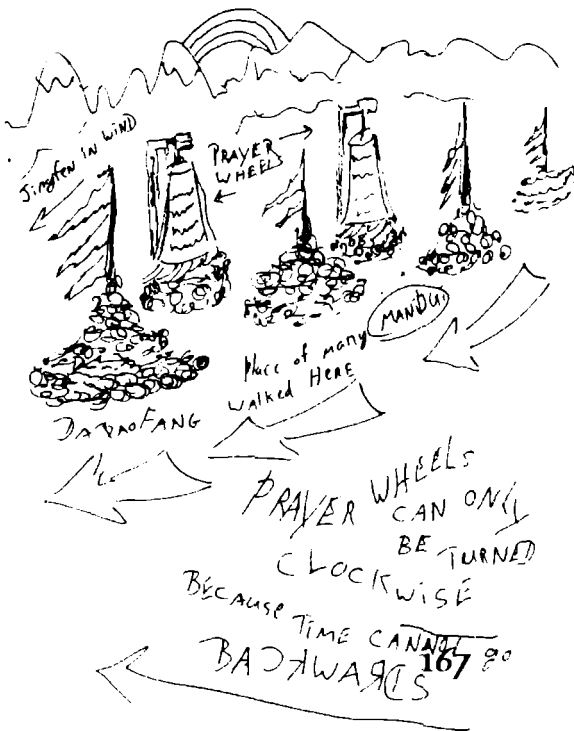 Jingfen IN WIND
PRAYER
WHEEL
MANDU
place of many
walked HERE
PRAYER WHEELS
CAN ONLY
BE TURNED
CLOCKWISE
BECAUSE TIME CANNOT go
BACKWARDS
167